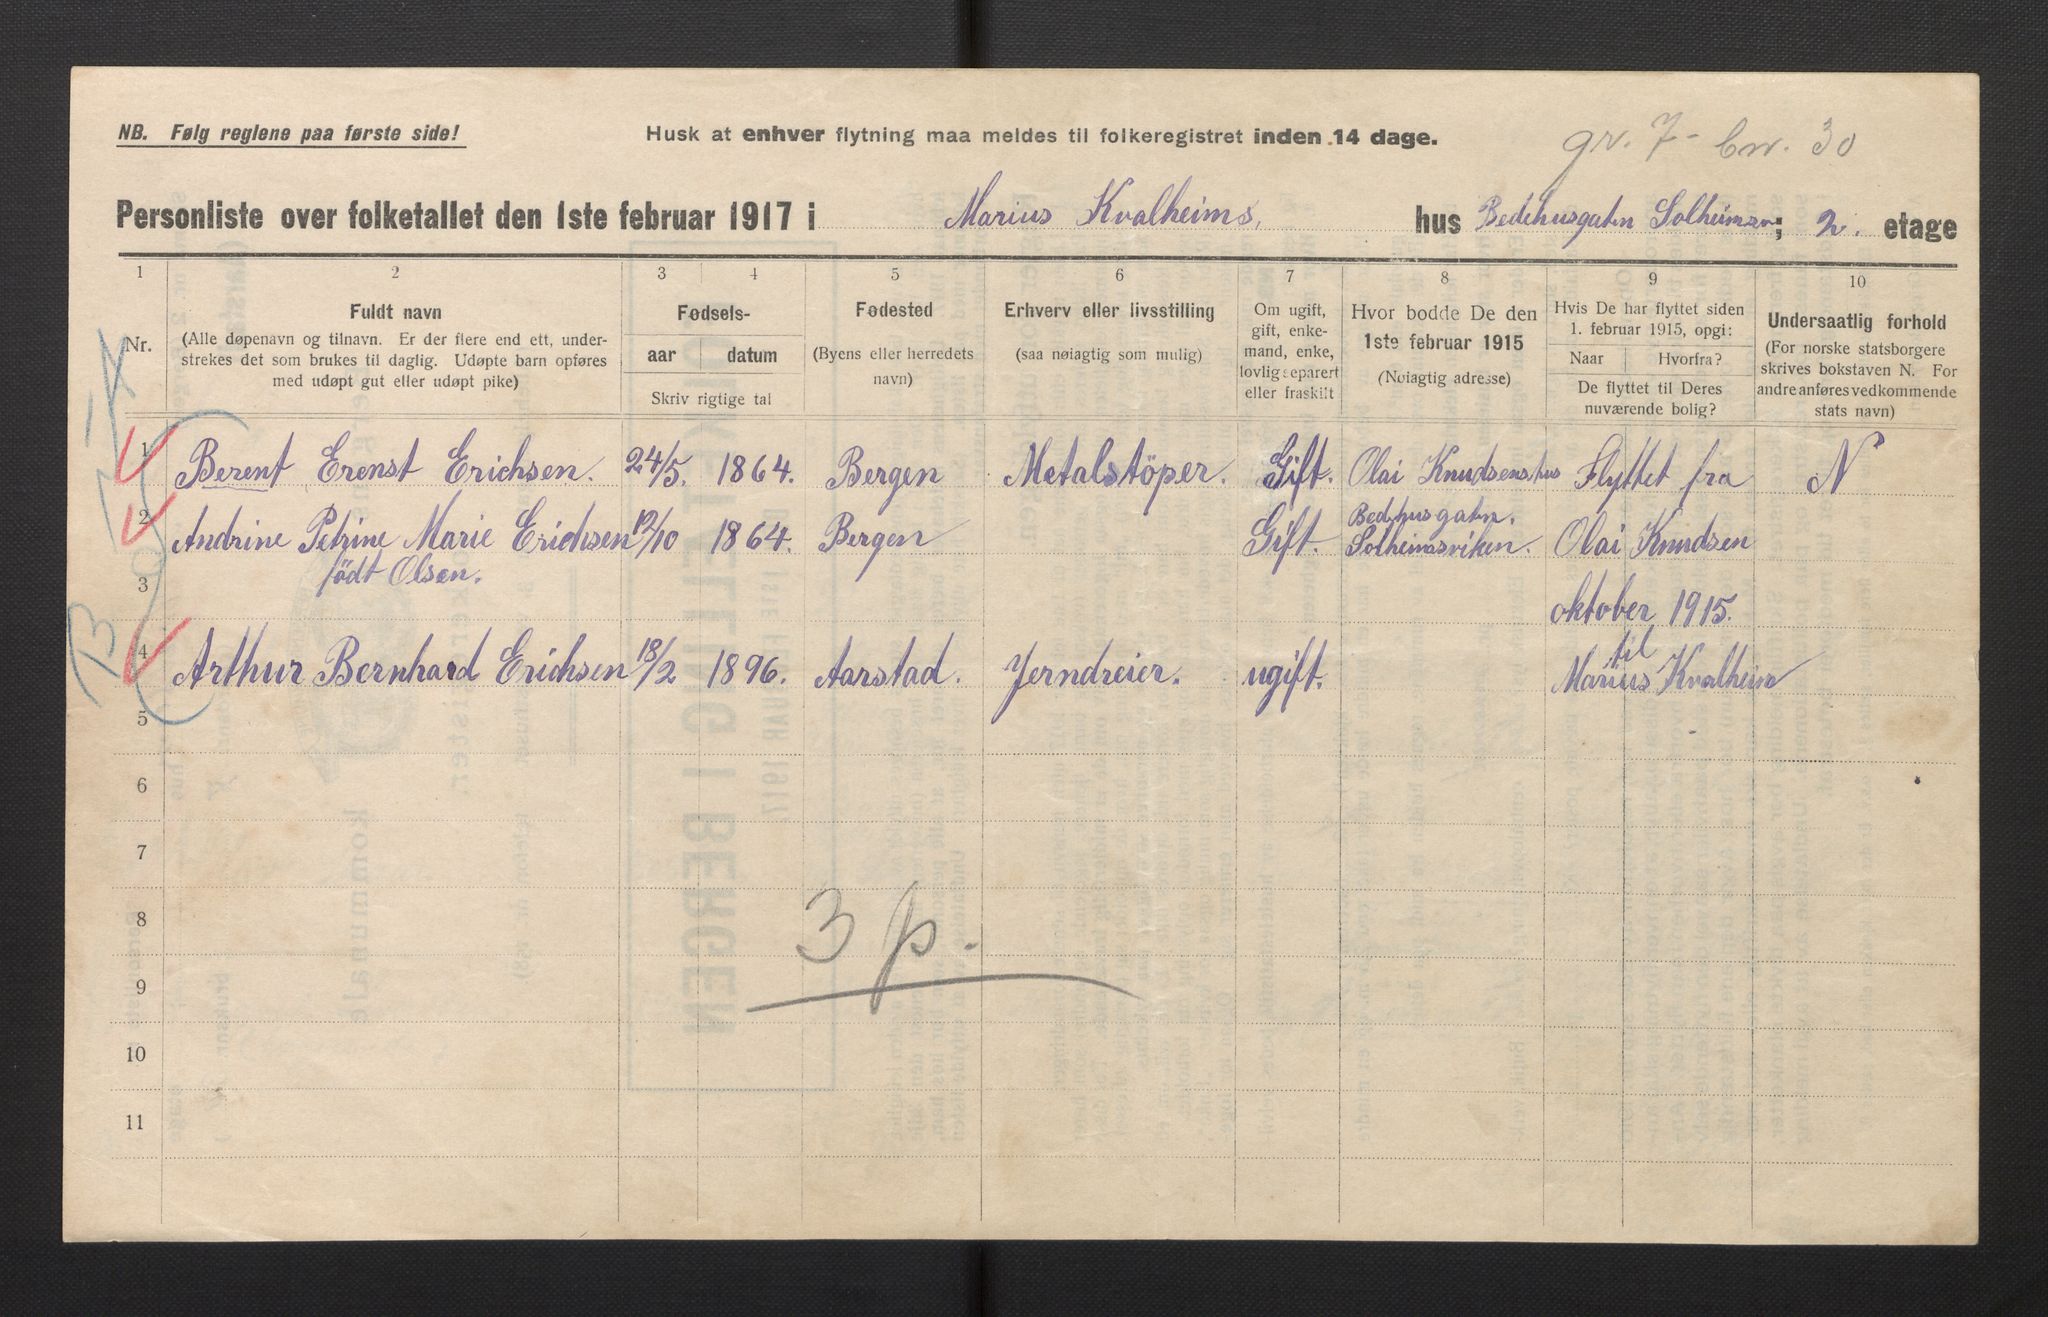 NB. Følg reglene paa første side!
Husk at enhver flytning maa meldes til folkeregistret inden 14 dage.
gr. 7 - bnr. 30
Personliste over folketallet den 1ste februar 1917 i Marius Kvalheims, hus Bedehusgaten Solheimsv; 2. etage
1 2 3 4 5 6 7 8 9 10
Nr.
Fuldt navn
(Alle døpenavn og tilnavn. Er der flere end ett, under-
strekes det som brukes til daglig. Udøpte barn opføres
med udøpt gut eller udøpt pike)
Fødsels-
aar datum
Skriv rigtige tal
Fødested
(Byens eller herredets
navn)
Erhverv eller livsstilling
(saa nøiagtig som mulig)
Om ugift,
gift, enke-
mand, enke,
lovlig separert
eller fraskilt
Hvor bodde De den
1ste februar 1915
(Nøiagtig adresse)
Hvis De har flyttet siden
1. februar 1915, opgi:
Naar Hvorfra?
De flyttet til Deres
nuværende bolig?
Undersaatlig forhold
(For norske statsborgere
skrives bokstaven N. For
andre anføres vedkommende
stats navn)
1 Berent Ernst Erichsen. 24/5. 1864. Bergen Metalstöper. Gift. Olai Knudsens hus Flyttet fra N
2 Andrine Petrine Marie Erichsen 12/10 1864. Bergen Gift. Bedehusgaten. Solheimsviken. Olai Knudsen
3 födt Olsen. oktober 1915.
til
4 Arthur Bernhard Erichsen 18/2 1896. Aarstad. Jerndreier. ugift. Marius Kvalheim
5
6
7
8
3 p.
9
10
11